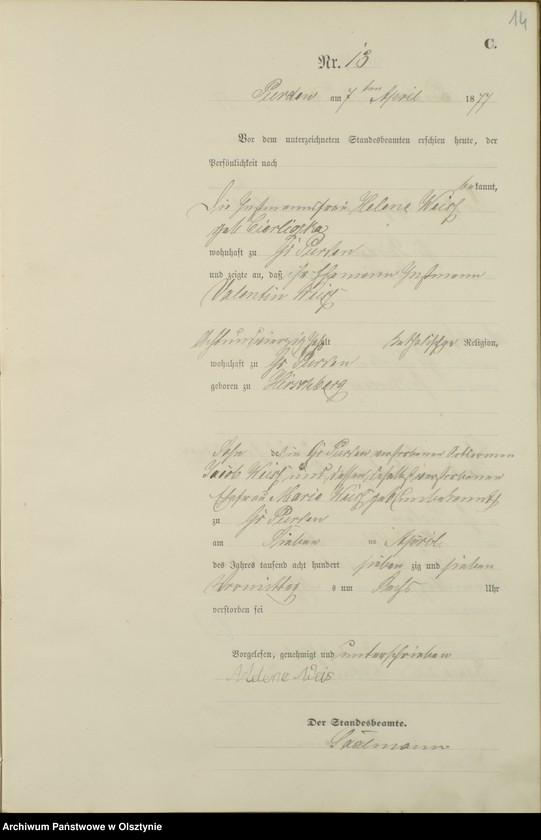 14
C.
Nr. 13
Purden am 7ten April 1877
Vor dem unterzeichneten Standesbeamten erschien heute, der
Persönlichkeit nach
bekannt,
Die Instmannsfrau Helene Weiss
geb.
wohnhaft zu Gr Purden
und zeigte an, daß ihr Ehemann Instmann
Valentin Weiss
Achtundvierzig Jahr alt katholischer Religion,
wohnhaft zu Gr Purden
geboren zu Hirschberg
Sohn des in Gr Purden verstorbenen
Jacob Weiss und dessen daselbst verstorbenen
Ehefrau Maria Weiss geb. Unbekannt
zu Gr Purden
am Sieben ten April
des Jahres tausend acht hundert sieben zig und sieben
Vormittag s um Sechs Uhr
verstorben sei
Vorgelesen, genehmigt und unterschrieben
Helene Weis
Der Standesbeamte.
Archiwum Państwowe w Olsztynie